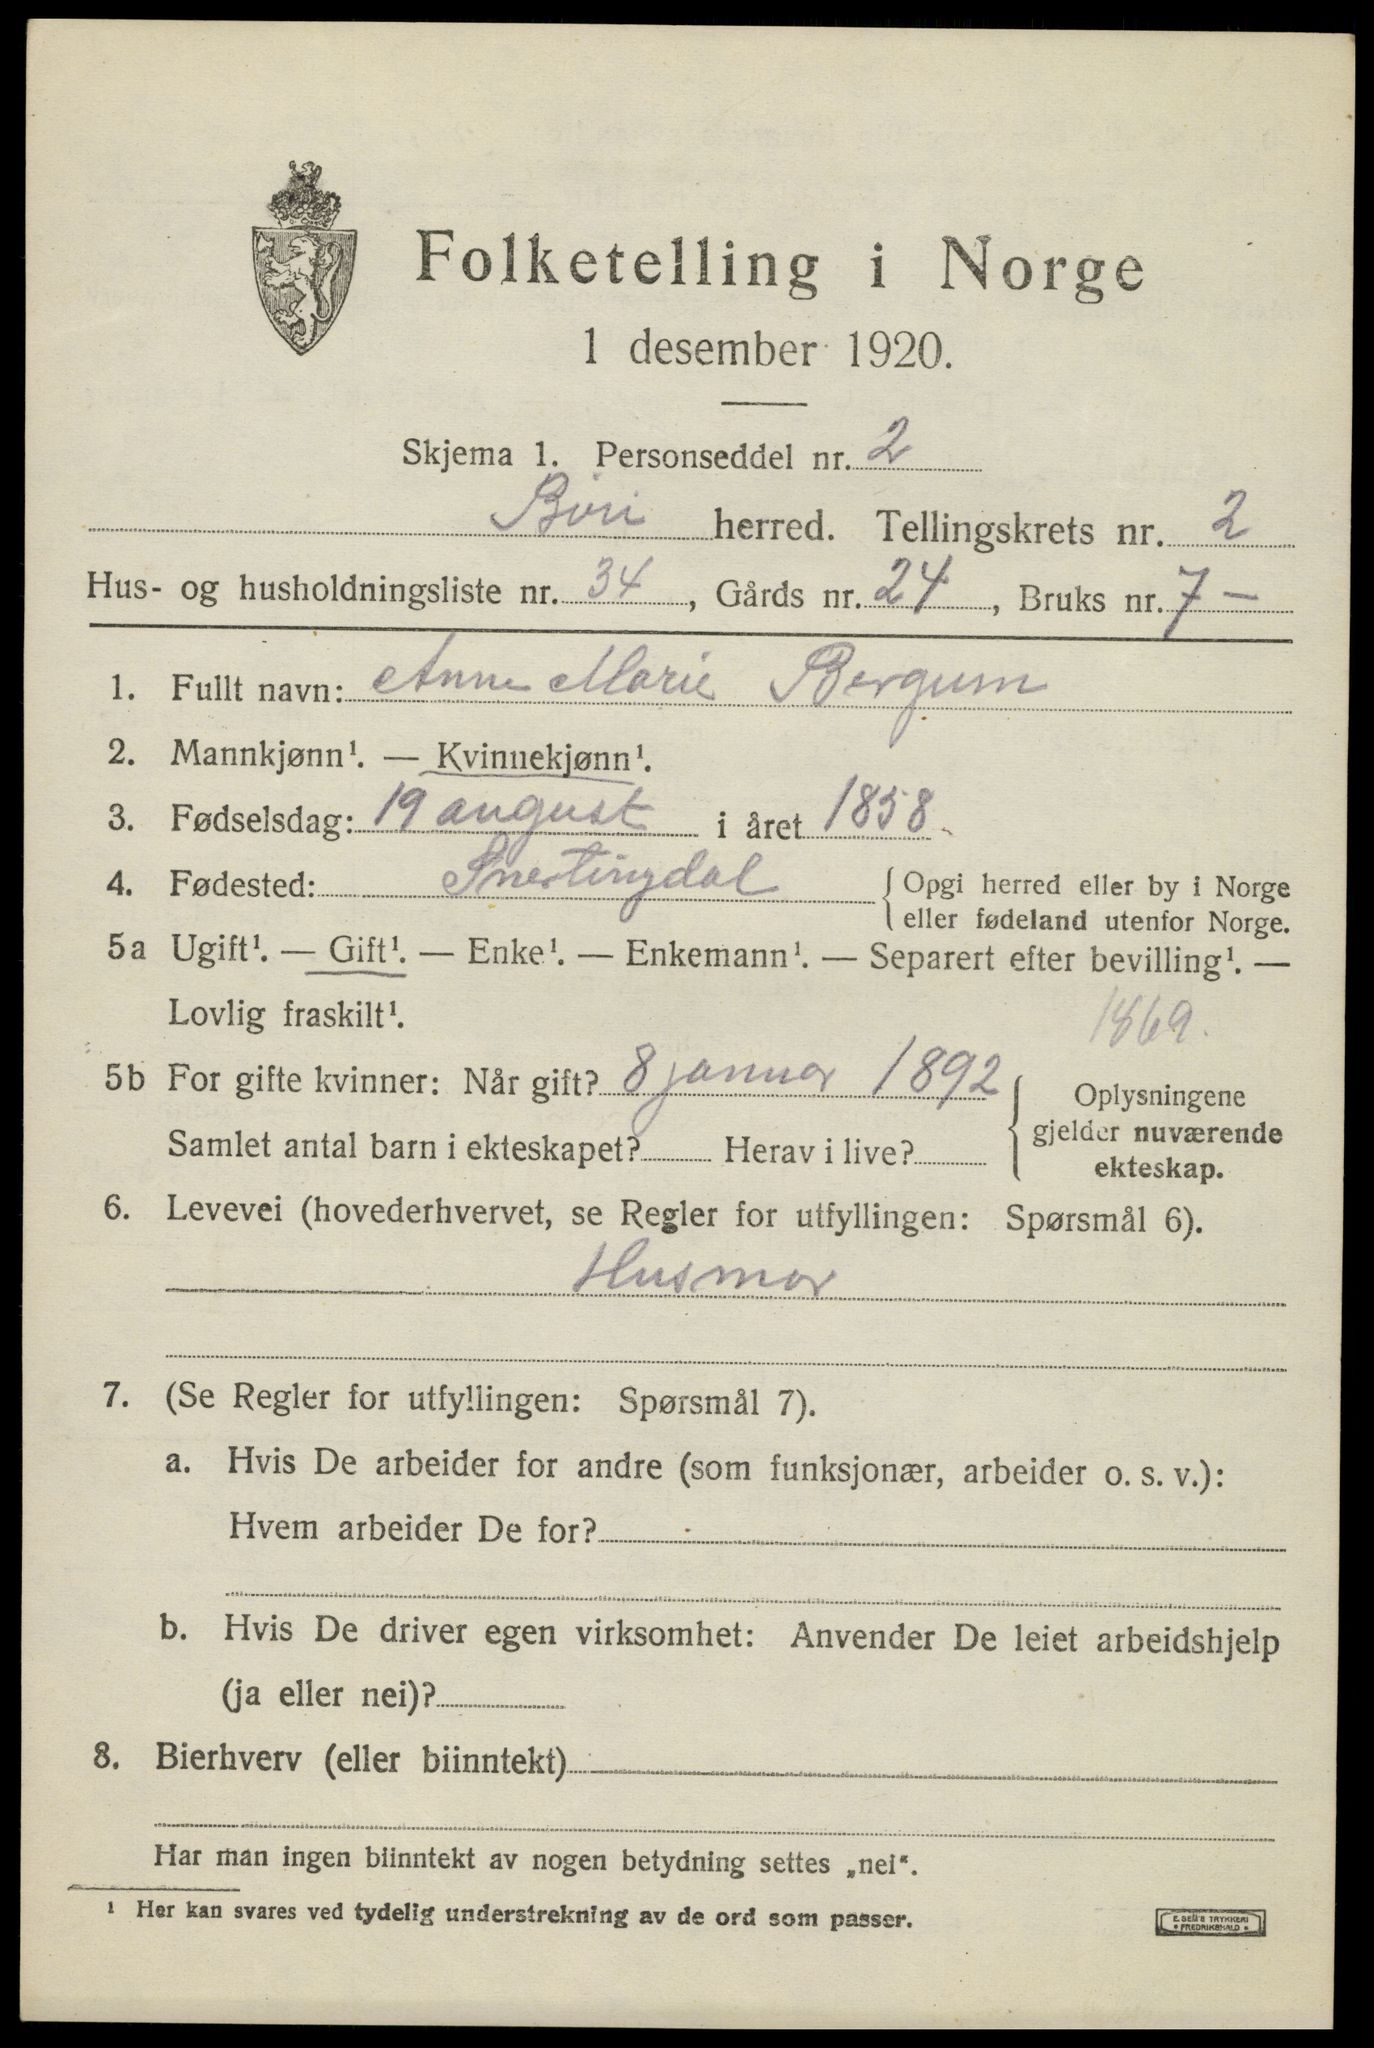 Folketelling i Norge
1 desember 1920.
Skjema 1. Personseddel nr. 2
Biri herred. Tellingskrets nr. 2
Hus- og husholdningsliste nr. 34, Gårds nr. 24, Bruks nr. 7 —
1. Fullt navn: Anne Marie Bergum
2. Mannkjønn¹. — Kvinnekjønn¹.
3. Fødselsdag: 19 august i året 1858
4. Fødested: Snertingdal {Opgi herred eller by i Norge
eller fødeland utenfor Norge.
5a Ugift¹. — Gift¹. — Enke¹. — Enkemann¹. — Separert efter bevilling¹. —
Lovlig fraskilt¹. 1869.
5b For gifte kvinner: Når gift? 8 januar 1892 { Oplysningene
gjelder nuværende
Samlet antal barn i ekteskapet? Herav i live?
ekteskap.
6. Levevei (hovederhvervet, se Regler for utfyllingen: Spørsmål 6).
Husmor
7. (Se Regler for utfyllingen: Spørsmål 7).
a. Hvis De arbeider for andre (som funksjonær, arbeider o. s. v.):
Hvem arbeider De for?
b. Hvis De driver egen virksomhet: Anvender De leiet arbeidshjelp
(ja eller nei)?
8. Bierhverv (eller biinntekt)
Har man ingen biinntekt av nogen betydning settes „nei“.
¹ Her kan svares ved tydelig understrekning av de ord som passer.
E. SEM'S TRYKKERI
• FREDRIKSHALD •